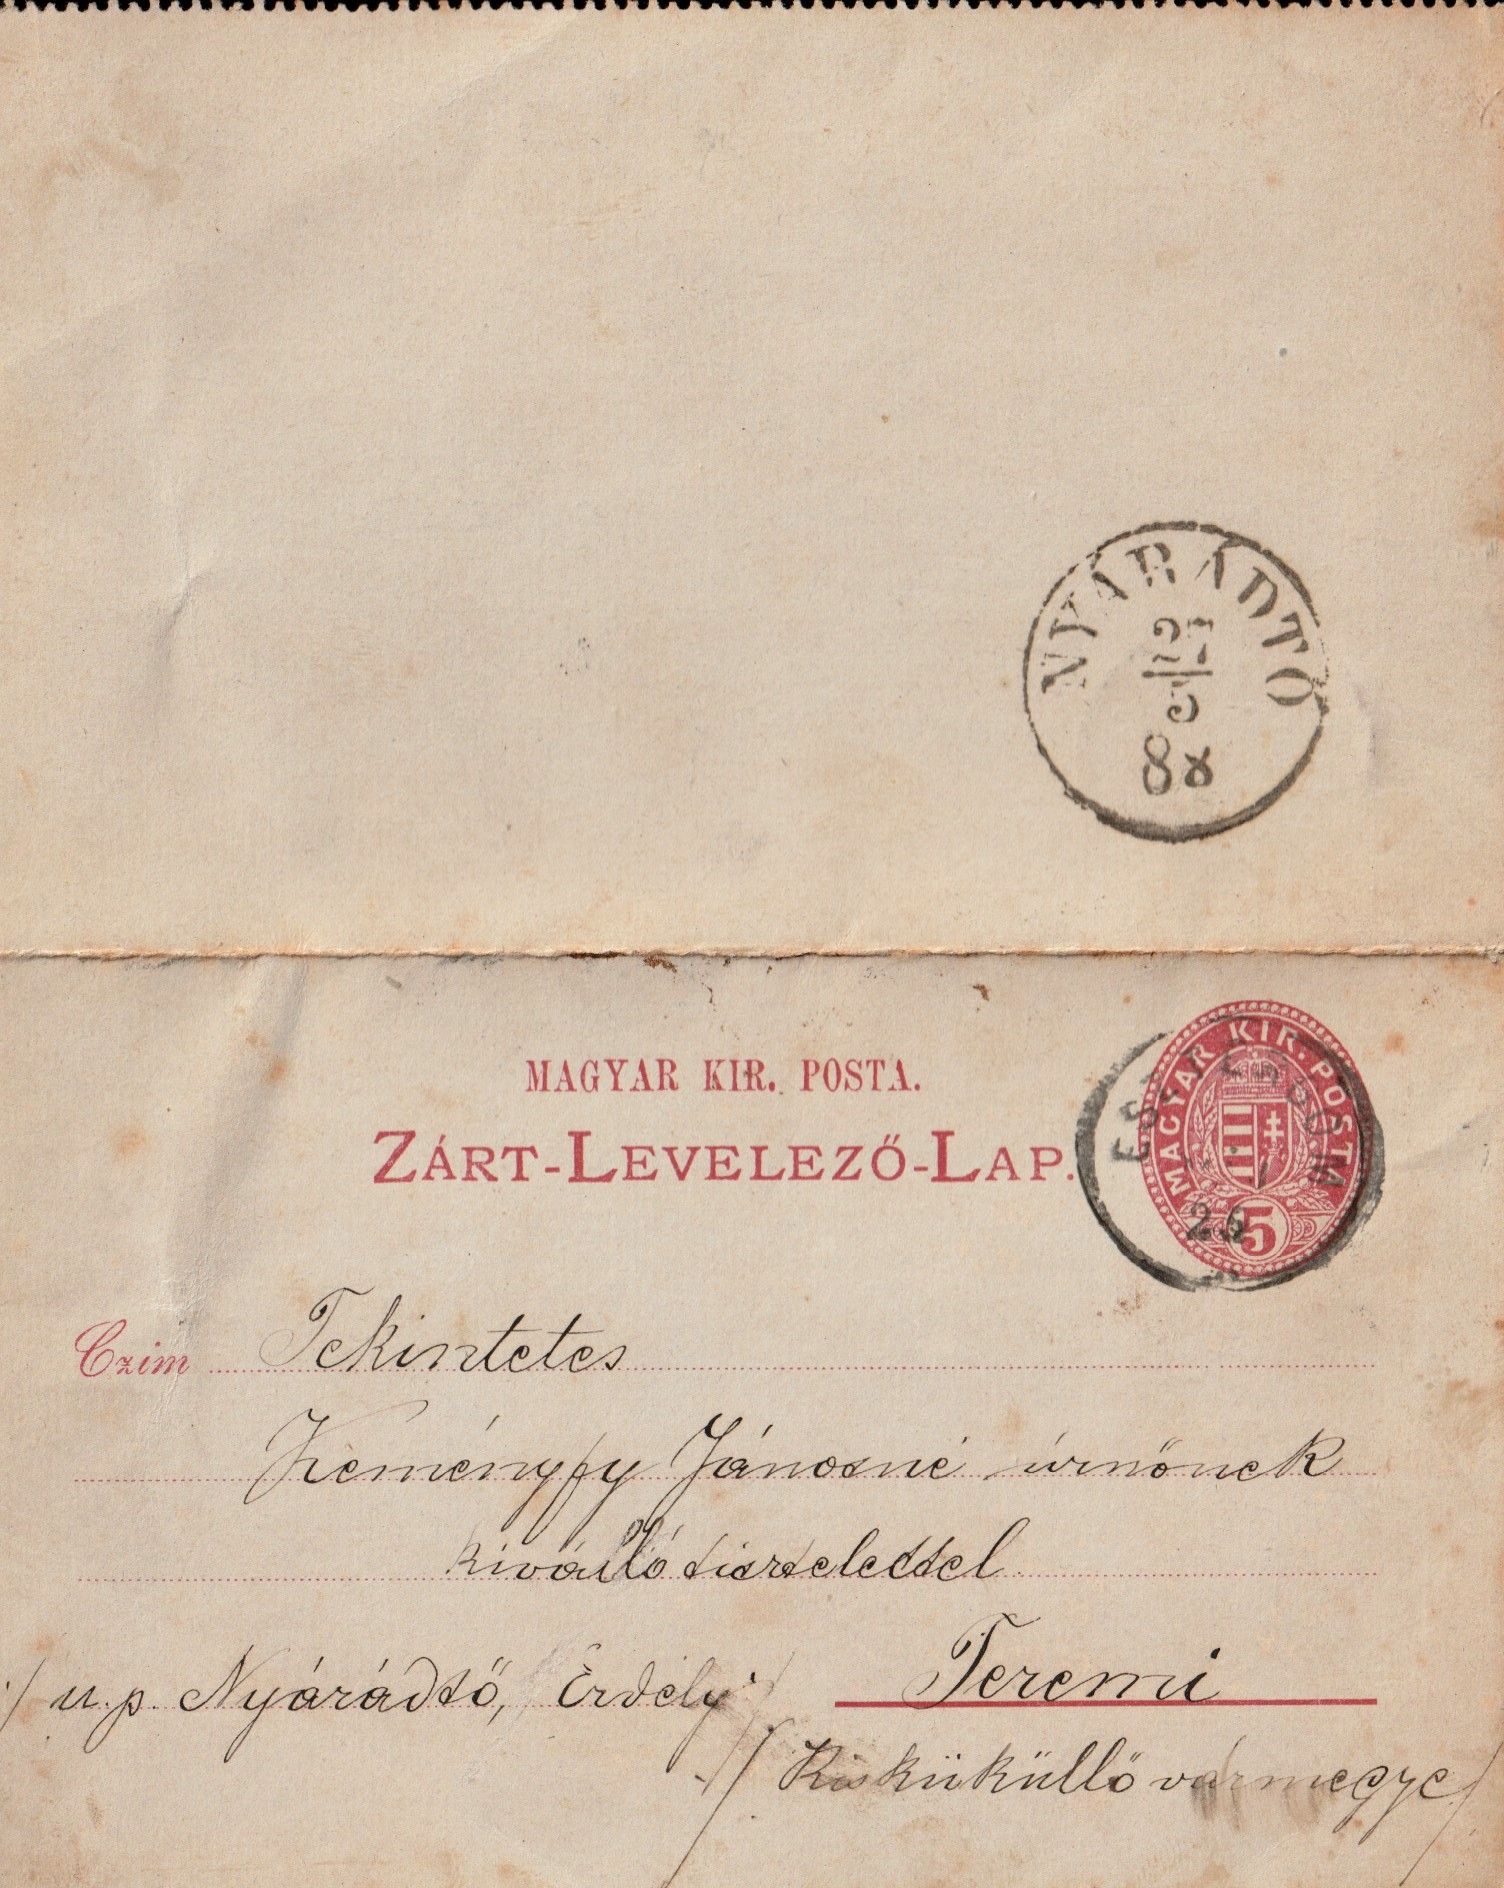 NYÁRÁDTŐ
88
MAGYAR KIR. POSTA.
ZÁRT-LEVELEZŐ-LAP.
MAGYAR KIR. POSTA
5
ESZTERGOM
Czim Tekintetes
Keményfy Jánosné úrnőnek
kiváló tisztelettel
/u. p. Nyárádtő, Erdély/ Teremi
/Kisküküllő vármegye/